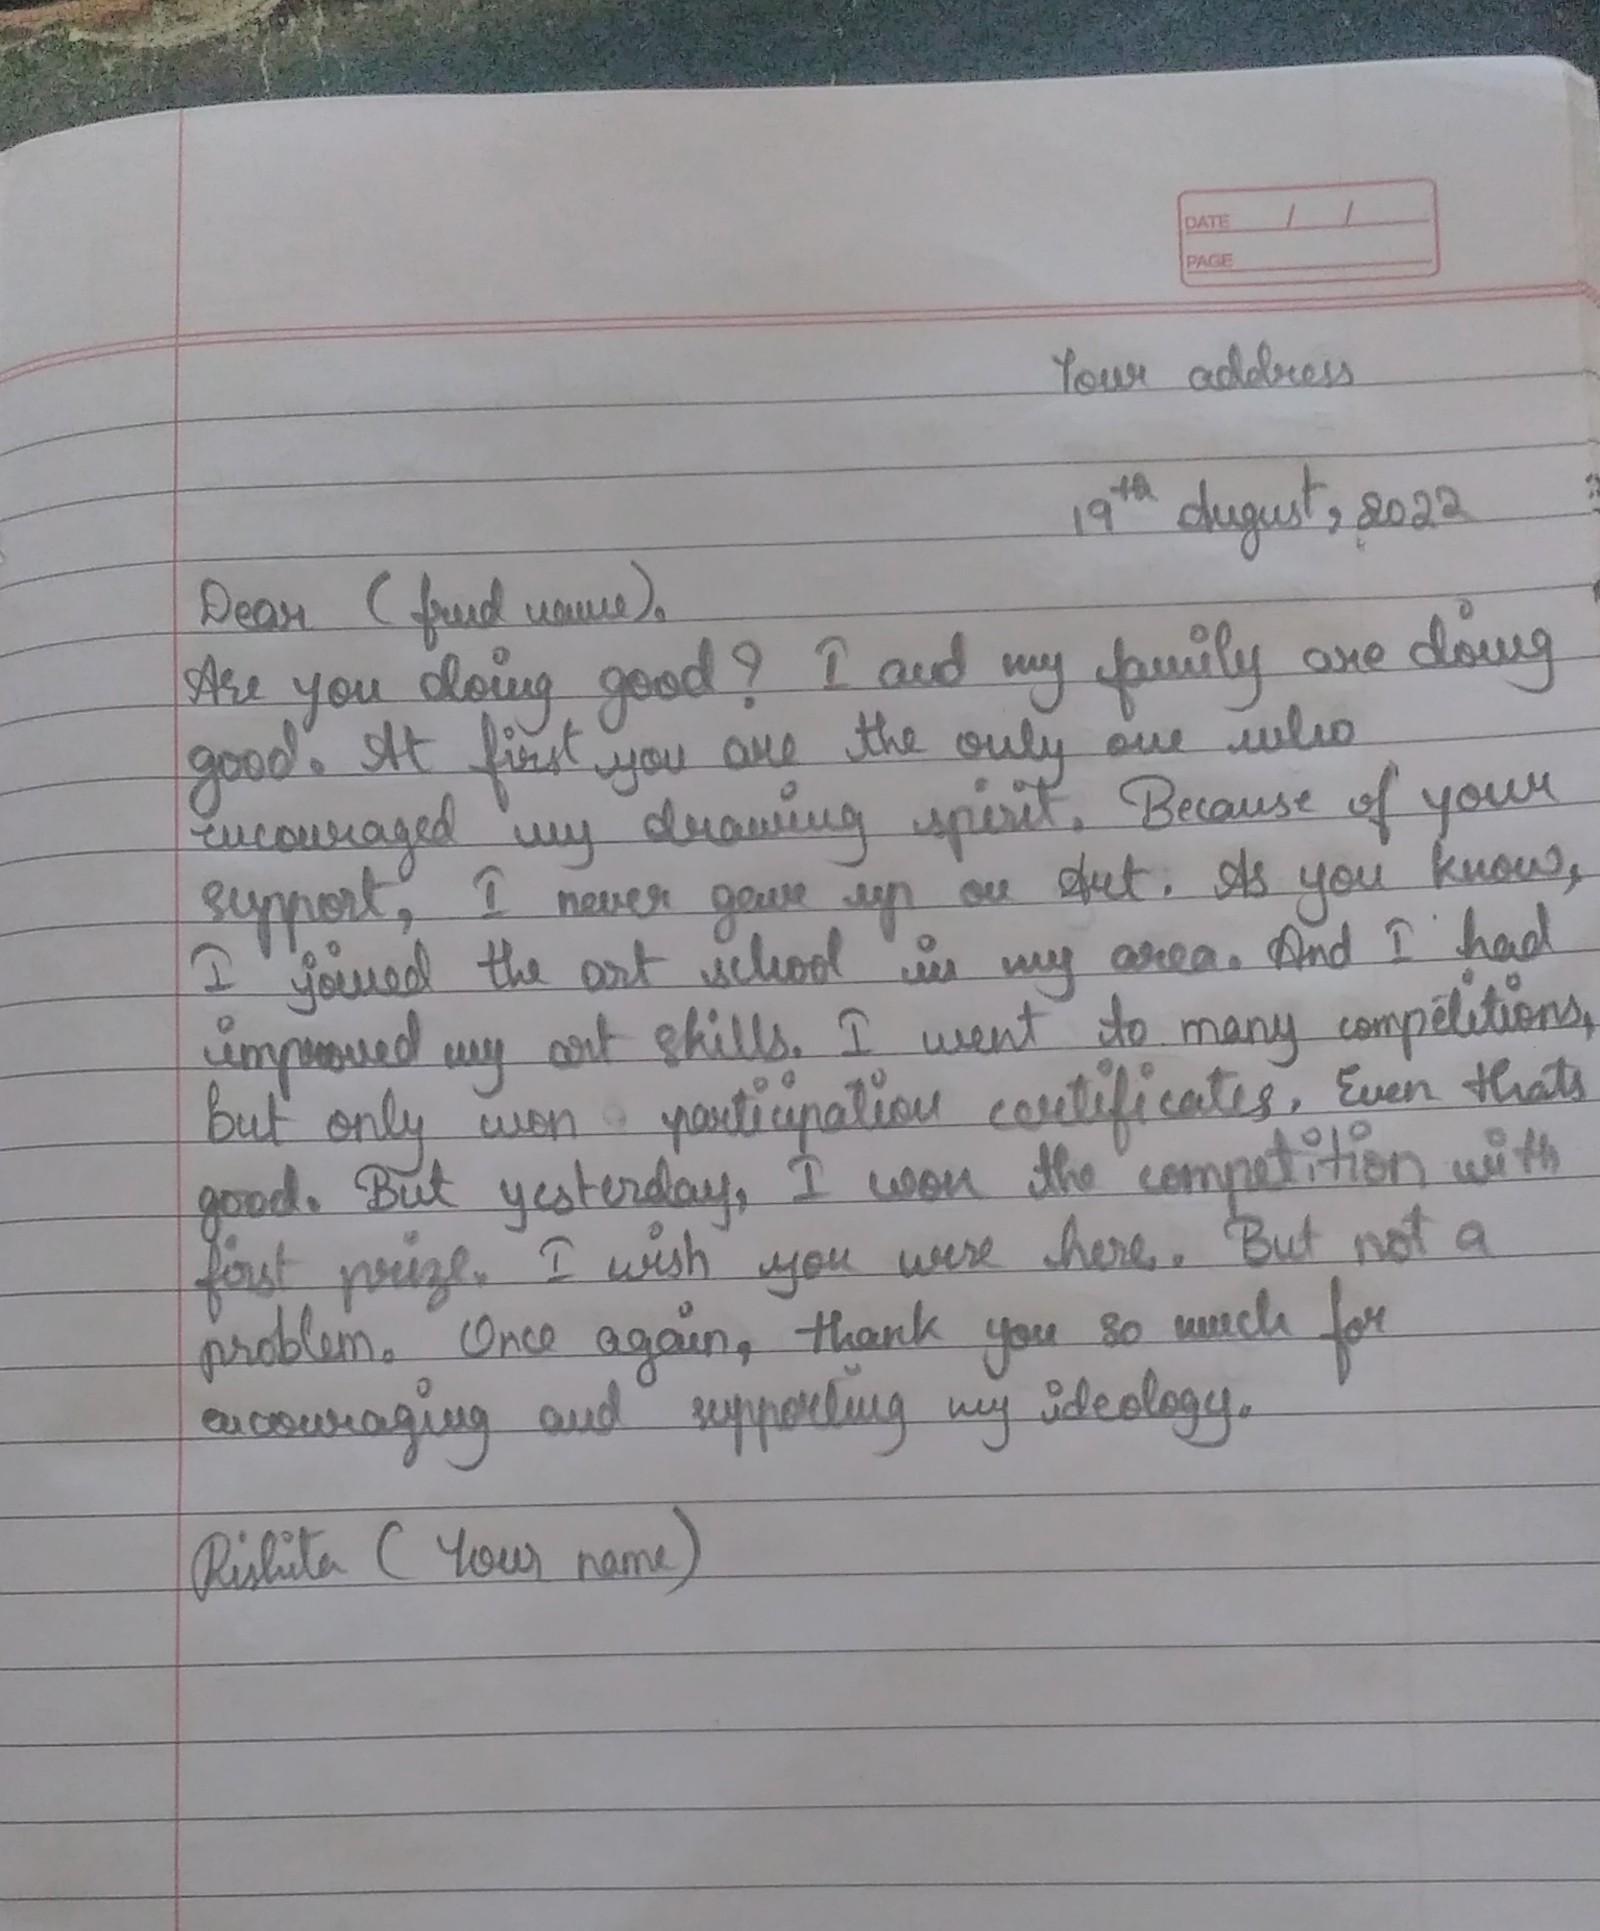 DATE / /
PAGE
Your address
19th August, 2022
Dear (frnd name).
Are you doing good? I and my family are doing
good. At first you are the only one who
encouraged my drawing spirit. Because of your
support, I never gave up on Art. As you know,
I joined the art school in my area. And I had
improved my art skills. I went to many competitions,
but only won participation certificates. Even thats
good. But yesterday, I won the competition with
first prize. I wish you were here. But not a
problem. Once again, thank you so much for
encouraging and supporting my ideology.
Rishita (Your name)